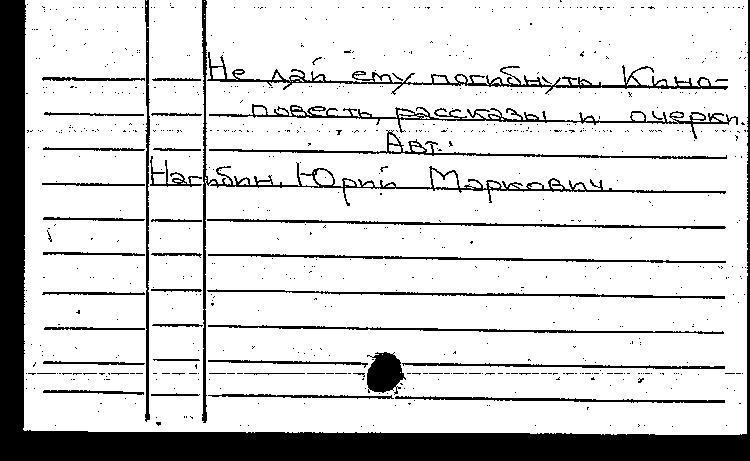 Не дай ему погибнуть. Кино-
повесть, рассказы и очерки.
Авт.:
Нагибин, Юрий Маркович.